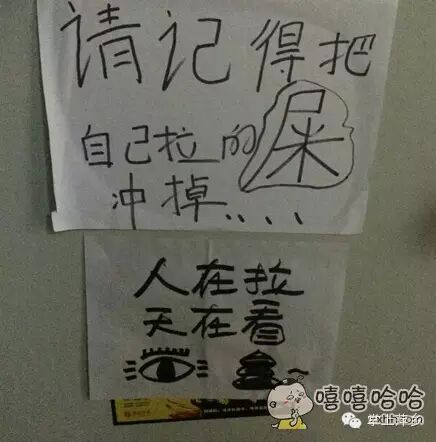 请记得把
自己拉的屎
冲掉、、、、
人在拉
天在看
嘻嘻哈哈